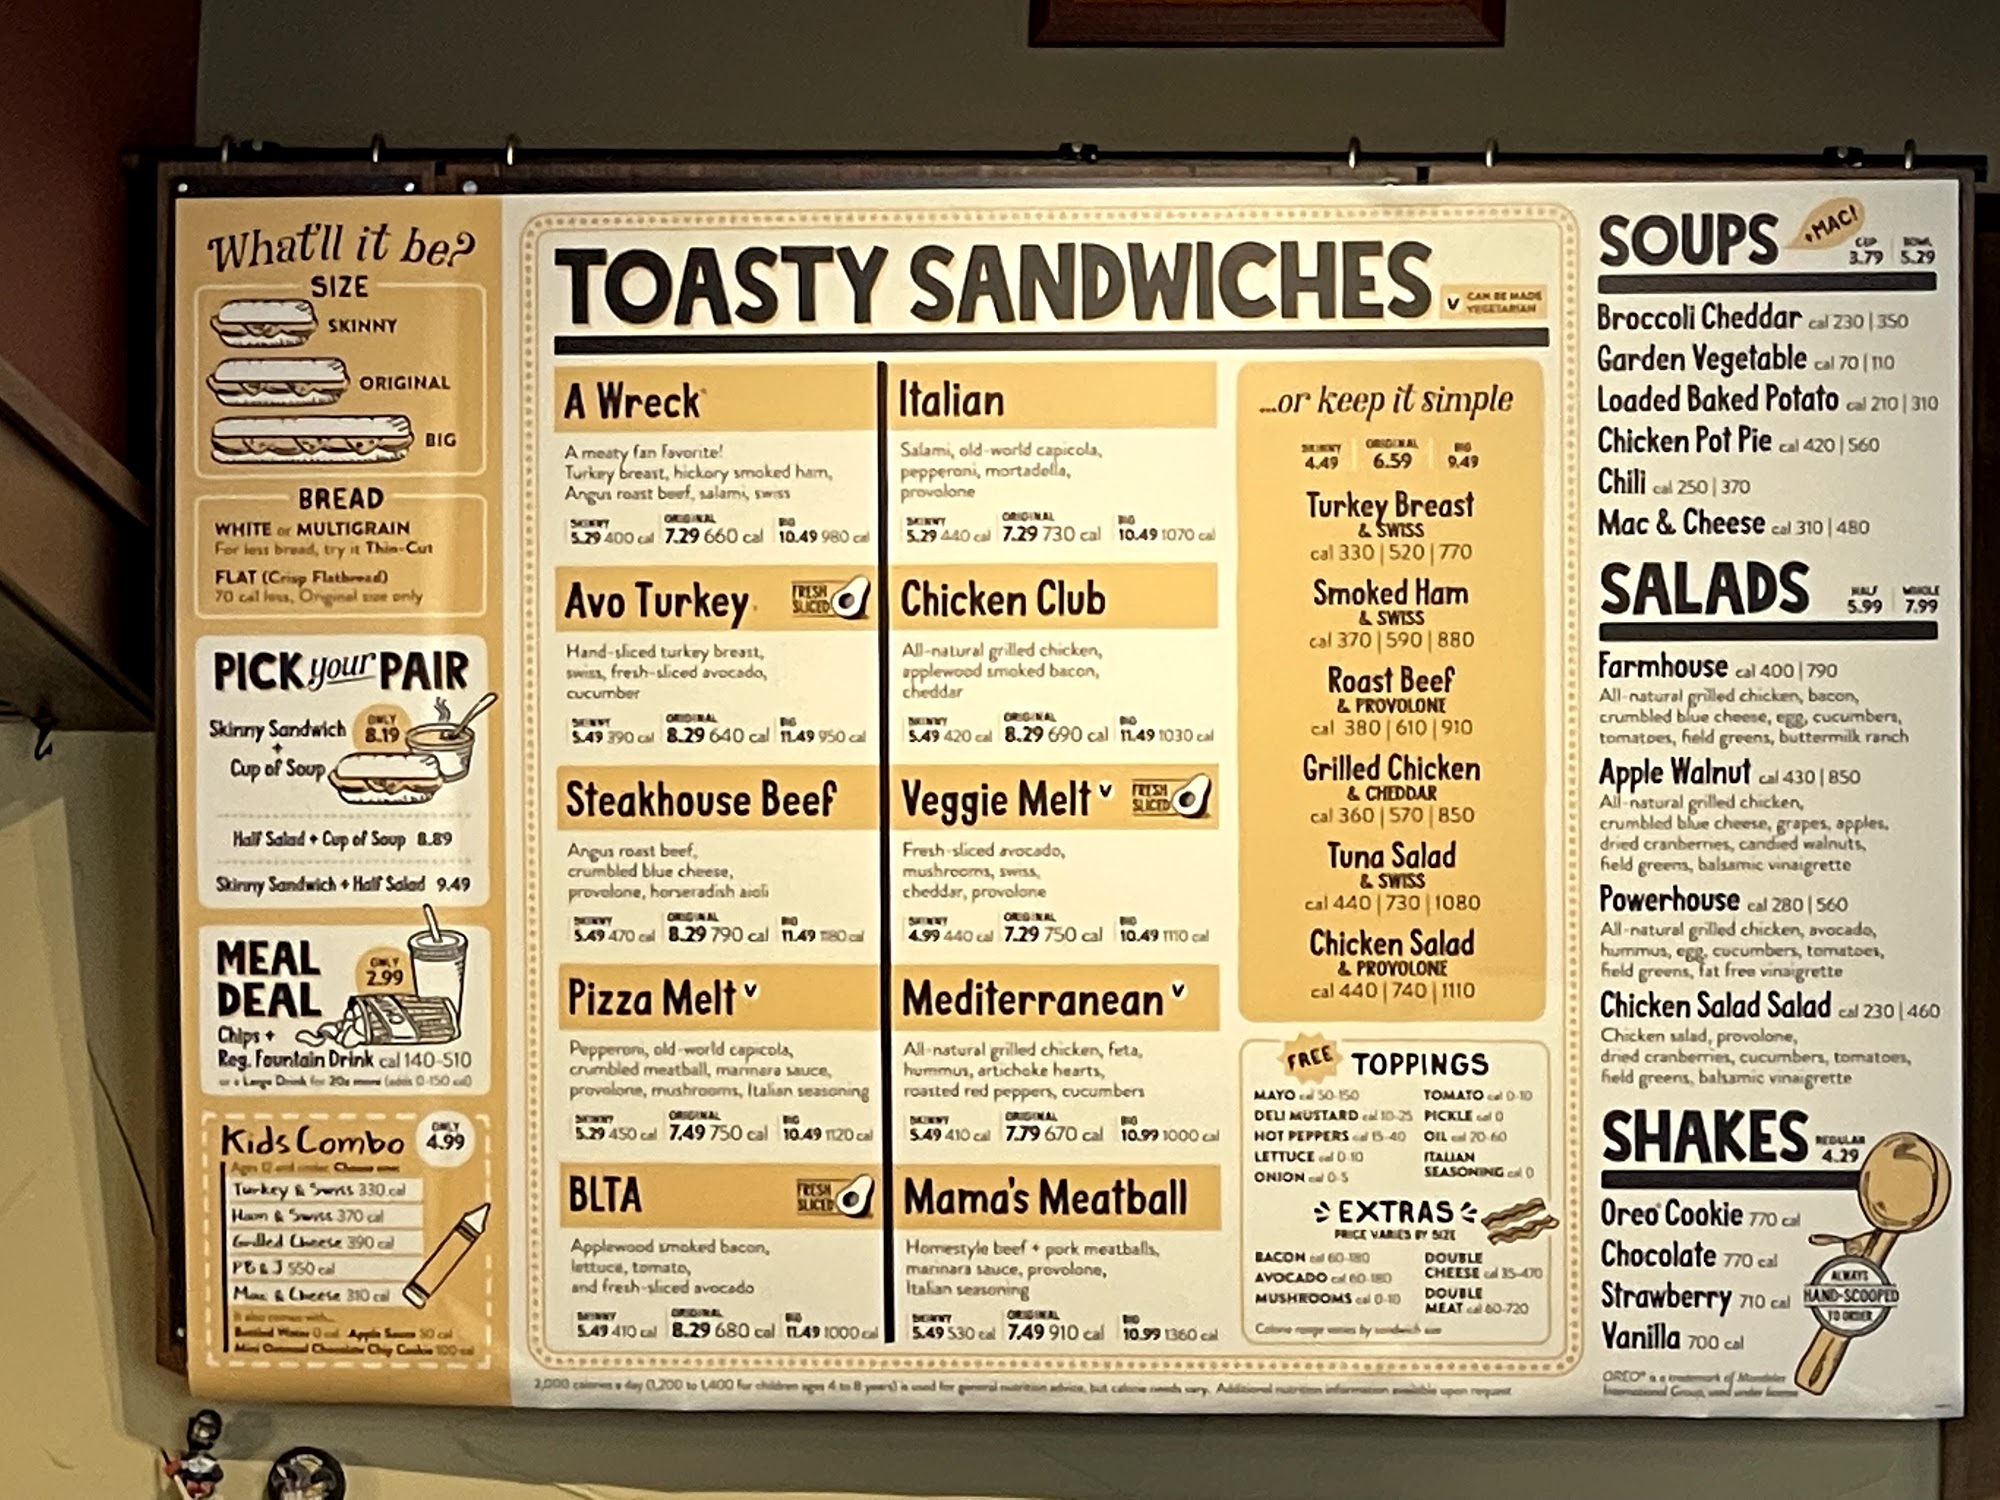 What'll it be?
SIZE
SKINNY
ORIGINAL
BIG
BREAD
WHITE or MULTIGRAIN
For less bread, try it Thin-Cut
FLAT (Crisp Flatbread)
70 cal less, Original size only
PICK your PAIR
Skinny Sandwich
+
Cup of Soup
ONLY
8.19
Half Salad + Cup of Soup 8.89
Skinny Sandwich + Half Salad 9.49
MEAL
DEAL
ONLY
2.99
Chips +
Reg. Fountain Drink cal 140-510
or a Large Drink for 20¢ more (adds 0-150 cal)
Kids Combo
ONLY
4.99
Ages 12 and under. Choose one:
Turkey & Swiss 330 cal
Ham & Swiss 370 cal
Grilled Cheese 390 cal
PB & J 550 cal
Mac & Cheese 310 cal
It also comes with...
Bottled Water 0 cal Apple Sauce 50 cal
Mini Oatmeal Chocolate Chip Cookie 100 cal
TOASTY SANDWICHES
V CAN BE MADE
VEGETARIAN
A Wreck®
A meaty fan favorite!
Turkey breast, hickory smoked ham,
Angus roast beef, salami, swiss
SKINNY ORIGINAL BIG
5.29 400 cal 7.29 660 cal 10.49 980 cal
Avo Turkey
FRESH
SLICED
Hand-sliced turkey breast,
swiss, fresh-sliced avocado,
cucumber
SKINNY ORIGINAL BIG
5.49 390 cal 8.29 640 cal 11.49 950 cal
Steakhouse Beef
Angus roast beef,
crumbled blue cheese,
provolone, horseradish aioli
SKINNY ORIGINAL BIG
5.49 470 cal 8.29 790 cal 11.49 1180 cal
Pizza Melt V
Pepperoni, old-world capicola,
crumbled meatball, marinara sauce,
provolone, mushrooms, Italian seasoning
SKINNY ORIGINAL BIG
5.29 450 cal 7.49 750 cal 10.49 1120 cal
BLTA
FRESH
SLICED
Applewood smoked bacon,
lettuce, tomato,
and fresh-sliced avocado
SKINNY ORIGINAL BIG
5.49 410 cal 8.29 680 cal 11.49 1000 cal
Italian
Salami, old-world capicola,
pepperoni, mortadella,
provolone
SKINNY ORIGINAL BIG
5.29 440 cal 7.29 730 cal 10.49 1070 cal
Chicken Club
All-natural grilled chicken,
applewood smoked bacon,
cheddar
SKINNY ORIGINAL BIG
5.49 420 cal 8.29 690 cal 11.49 1030 cal
Veggie Melt V
FRESH
SLICED
Fresh-sliced avocado,
mushrooms, swiss,
cheddar, provolone
SKINNY ORIGINAL BIG
4.99 440 cal 7.29 750 cal 10.49 1110 cal
Mediterranean V
All-natural grilled chicken, feta,
hummus, artichoke hearts,
roasted red peppers, cucumbers
SKINNY ORIGINAL BIG
5.49 410 cal 7.79 670 cal 10.99 1000 cal
Mama's Meatball
Homestyle beef + pork meatballs,
marinara sauce, provolone,
Italian seasoning
SKINNY ORIGINAL BIG
5.49 530 cal 7.49 910 cal 10.99 1360 cal
...or keep it simple
SKINNY ORIGINAL BIG
4.49 6.59 9.49
Turkey Breast
& SWISS
cal 330 | 520 | 770
Smoked Ham
& SWISS
cal 370 | 590 | 880
Roast Beef
& PROVOLONE
cal 380 | 610 | 910
Grilled Chicken
& CHEDDAR
cal 360 | 570 | 850
Tuna Salad
& SWISS
cal 440 | 730 | 1080
Chicken Salad
& PROVOLONE
cal 440 | 740 | 1110
FREE TOPPINGS
MAYO cal 50-150
DELI MUSTARD cal 10-25
HOT PEPPERS cal 15-40
LETTUCE cal 0-10
ONION cal 0-5
TOMATO cal 0-10
PICKLE cal 0
OIL cal 20-60
ITALIAN
SEASONING cal 0
EXTRAS
PRICE VARIES BY SIZE
BACON cal 60-180
AVOCADO cal 60-180
MUSHROOMS cal 0-10
DOUBLE
CHEESE cal 35-470
DOUBLE
MEAT cal 60-720
Calorie range varies by sandwich size
2,000 calories a day (1,200 to 1,400 for children ages 4 to 8 years) is used for general nutrition advice, but calorie needs vary. Additional nutrition information available upon request
SOUPS
+MAC!
CUP BOWL
3.79 5.29
Broccoli Cheddar cal 230 | 350
Garden Vegetable cal 70 | 110
Loaded Baked Potato cal 210 | 310
Chicken Pot Pie cal 420 | 560
Chili cal 250 | 370
Mac & Cheese cal 310 | 480
SALADS
HALF WHOLE
5.99 7.99
Farmhouse cal 400 | 790
All-natural grilled chicken, bacon,
crumbled blue cheese, egg, cucumbers,
tomatoes, field greens, buttermilk ranch
Apple Walnut cal 430 | 850
All-natural grilled chicken,
crumbled blue cheese, grapes, apples,
dried cranberries, candied walnuts,
field greens, balsamic vinaigrette
Powerhouse cal 280 | 560
All-natural grilled chicken, avocado,
hummus, egg, cucumbers, tomatoes,
field greens, fat free vinaigrette
Chicken Salad Salad cal 230 | 460
Chicken salad, provolone,
dried cranberries, cucumbers, tomatoes,
field greens, balsamic vinaigrette
SHAKES
REGULAR
4.29
Oreo® Cookie 770 cal
Chocolate 770 cal
Strawberry 710 cal
Vanilla 700 cal
ALWAYS
HAND-SCOOPED
TO ORDER
OREO® is a trademark of Mondelez
International Group, used under license